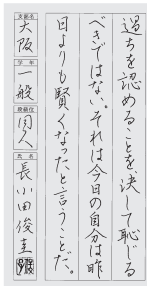 過ちを認めることを決して恥じる
べきではない。それは今日の自分は昨
日よりも賢くなったと言うことだ。
支部名
大阪
学年
一般
段級位
同人
氏名
長小田俊圭